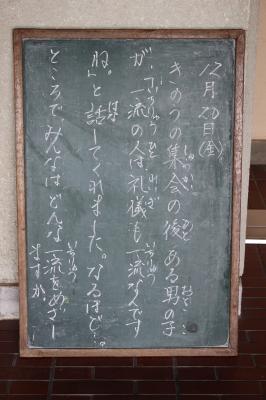 12月20日(金)
きのうの集会の後、ある男の子
が、「一流の人は礼儀も一流なんです
ね。」と話してくれました。なるほど…。
ところで、みんなはどんな一流をめざし
ますか。